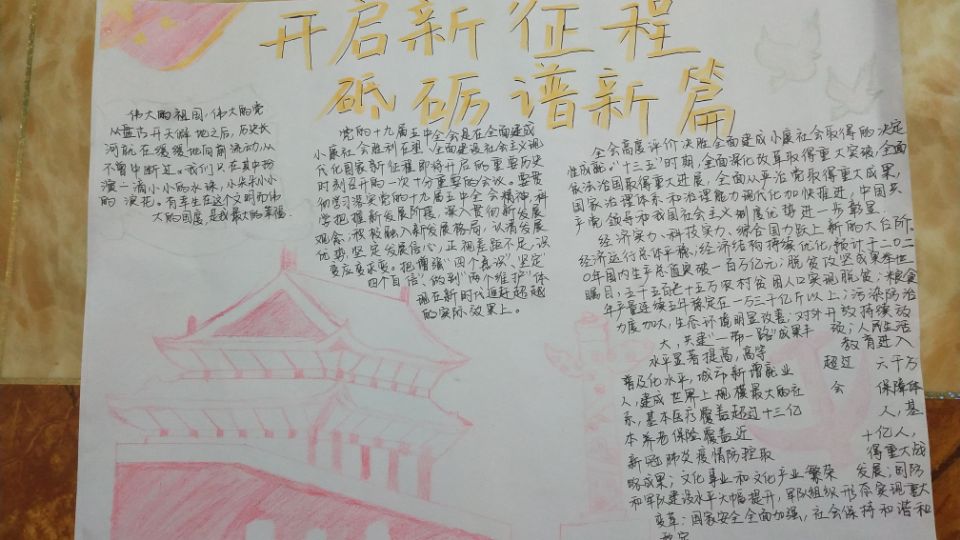 开启新征程
砥砺谱新篇
伟大的祖国,伟大的党
从盘古开天辟地之后,历史长
河就在缓缓地向前流动,从
不曾中断过。我们只在其中扮
演一滴小小的水珠,小朵小小
的浪花。有幸生在这个文明充
大的国度,是我最大的幸福.
党的十九届五中全会是在全面建成
小康社会胜利在望、全面建设社会主义现
代化国家新征程即将开启的重要历史
时刻召开的一次十分重要的会议。要贯
彻学习落实党的十九届五中全会精神,科
学把握新发展阶段,深入贯彻新发展
观念,积极融入新发展格局,认清发展
优势,坚定发展信心,正视差距不足,识
变应变求变。把增强“四个意识”、坚定
四个自信”、做到“两个维护”体
现在新时代追赶超越
的实际效果上。
全会高度评价决胜全面建成小康社会取得的决定
性成就。“十三五”时期,全面深化改革取得重大突破,全面
依法治国取得重大进展,全面从严治党取得重大成果,
国家治理体系和治理能力现代化加快推进,中国共
产党领导和我国社会主义制度优势进一步彰显.
经济实力、科技实力、综合国力跃上新的大台阶.
经济运行总体平稳,经济结构持续优化,预计于二〇二
〇年国内生产总值突破一百万亿元;脱贫攻坚成果举世
瞩目,五千五百七十五万农村贫困人口实现脱贫;粮食
年产量连续五年稳定在一万三千亿斤以上;污染防治
力度加大,生态环境明显改善;对外开放持续扩
大,共建“一带一路”成果丰 硕;人民生活
水平显著提高,高等 教育进入
普及化水平,城市新增就业 超过 六千万
人,建成世界上规模最大的社 会 保障体
系,基本医疗覆盖超过十三亿 人,基
本养老保险覆盖近 十亿人,
新冠肺炎疫情防控取 得重大战
略成果;文化事业和文化产业繁荣 发展;国防
和军队建设水平大幅提升,军队组织形态实现重大
变革;国家安全全面加强,社会保持和谐和